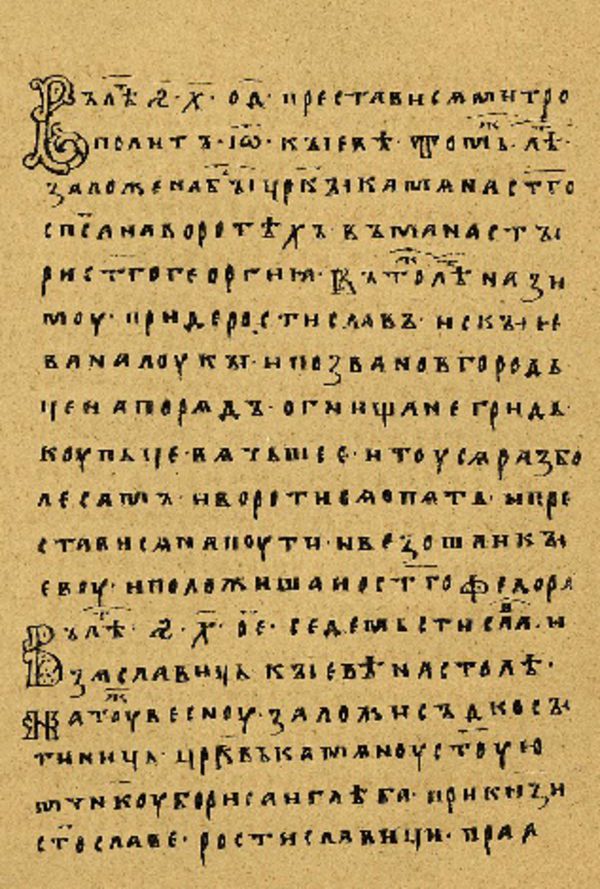 Въ лѣ ҂ѕ·х҃·од҃· прѣстависѧ митро
политъ·іѡ҃·кыевѣ·Томь лѣ·
заложена бы црк҃ы камѧна ст҃го
сп҃са на воротѣхъ въ манасты
ри ст҃го георгиѧ· Въ то лѣ на зи
моу· приде ростиславъ· ис кые
ва на лоукы· и позва новъгородь
це на порѧдъ· огнищане гридь·
коупьце вѧтьшее· и тоу сѧ разбо
лѣ самъ· и воротисѧ опѧть· и пре
стависѧ на поути· и везоша и кы
евоу· и положиша и оу ст҃го федора
Въ лѣ ҂ѕ·х҃·ое҃· седе мьстисла и
зѧславиць кыевѣ на столѣ·
На тоу весноу· заложи съдко сы
тиниць· црк҃вь камѧноу ст҃ою
мч҃нкоу бориса и глѣба· при кнѧзи
ст҃ославе· ростиславици· при а